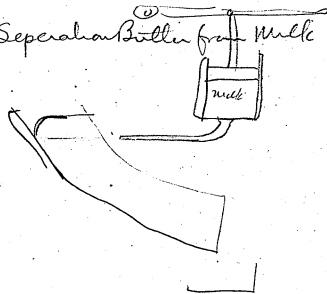 Seperation Butter from Milk
Milk